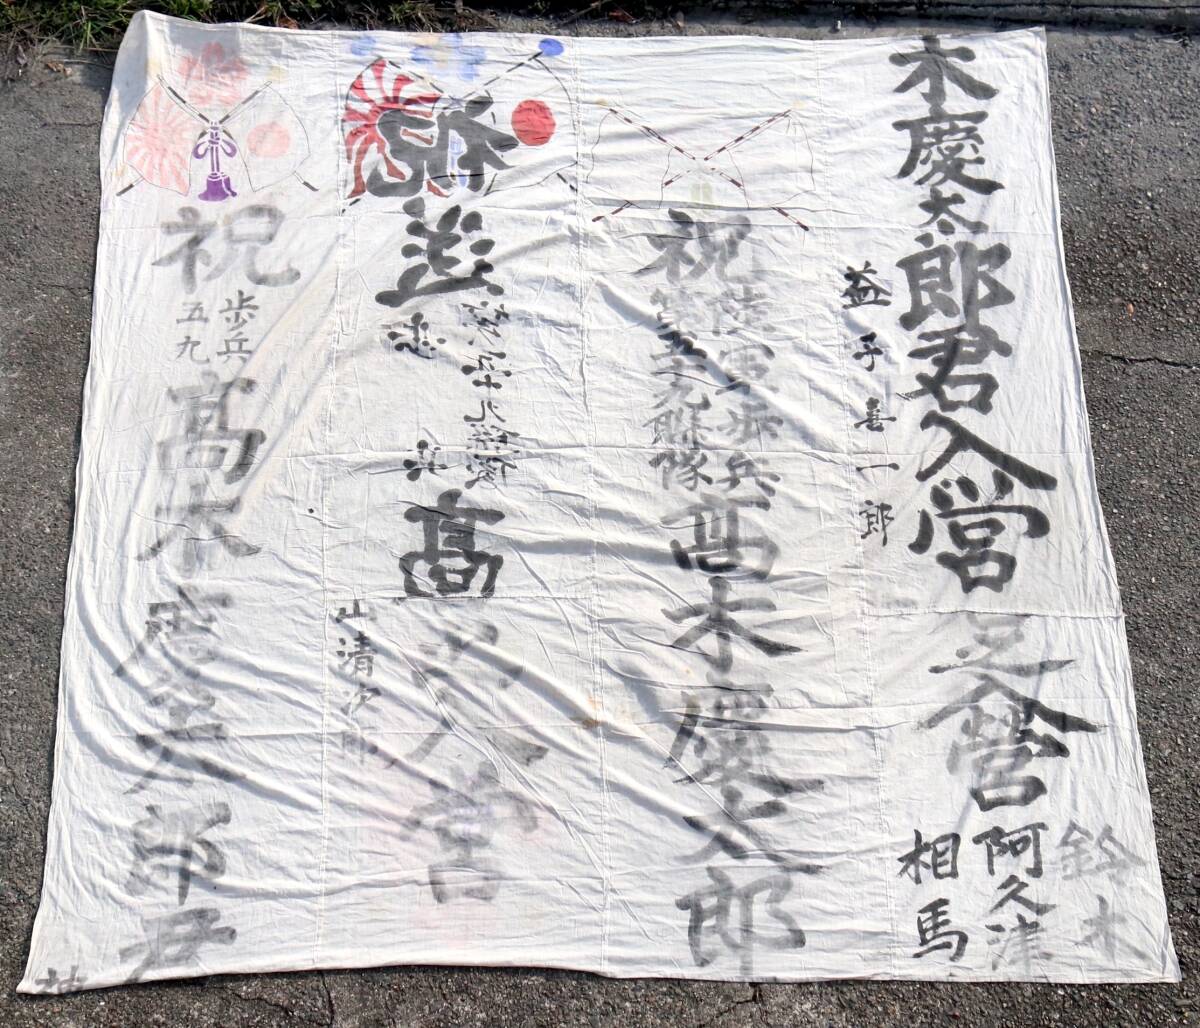 木慶太郎君入営
君入営
鈴木
阿久津
相馬
益子喜一郎
祝
陸軍歩兵
第五九聯隊
高木慶太郎
祝
歩兵五十九聯隊
歩兵
高
入営
山清次郎
祝
歩兵
五九
高木慶太郎君